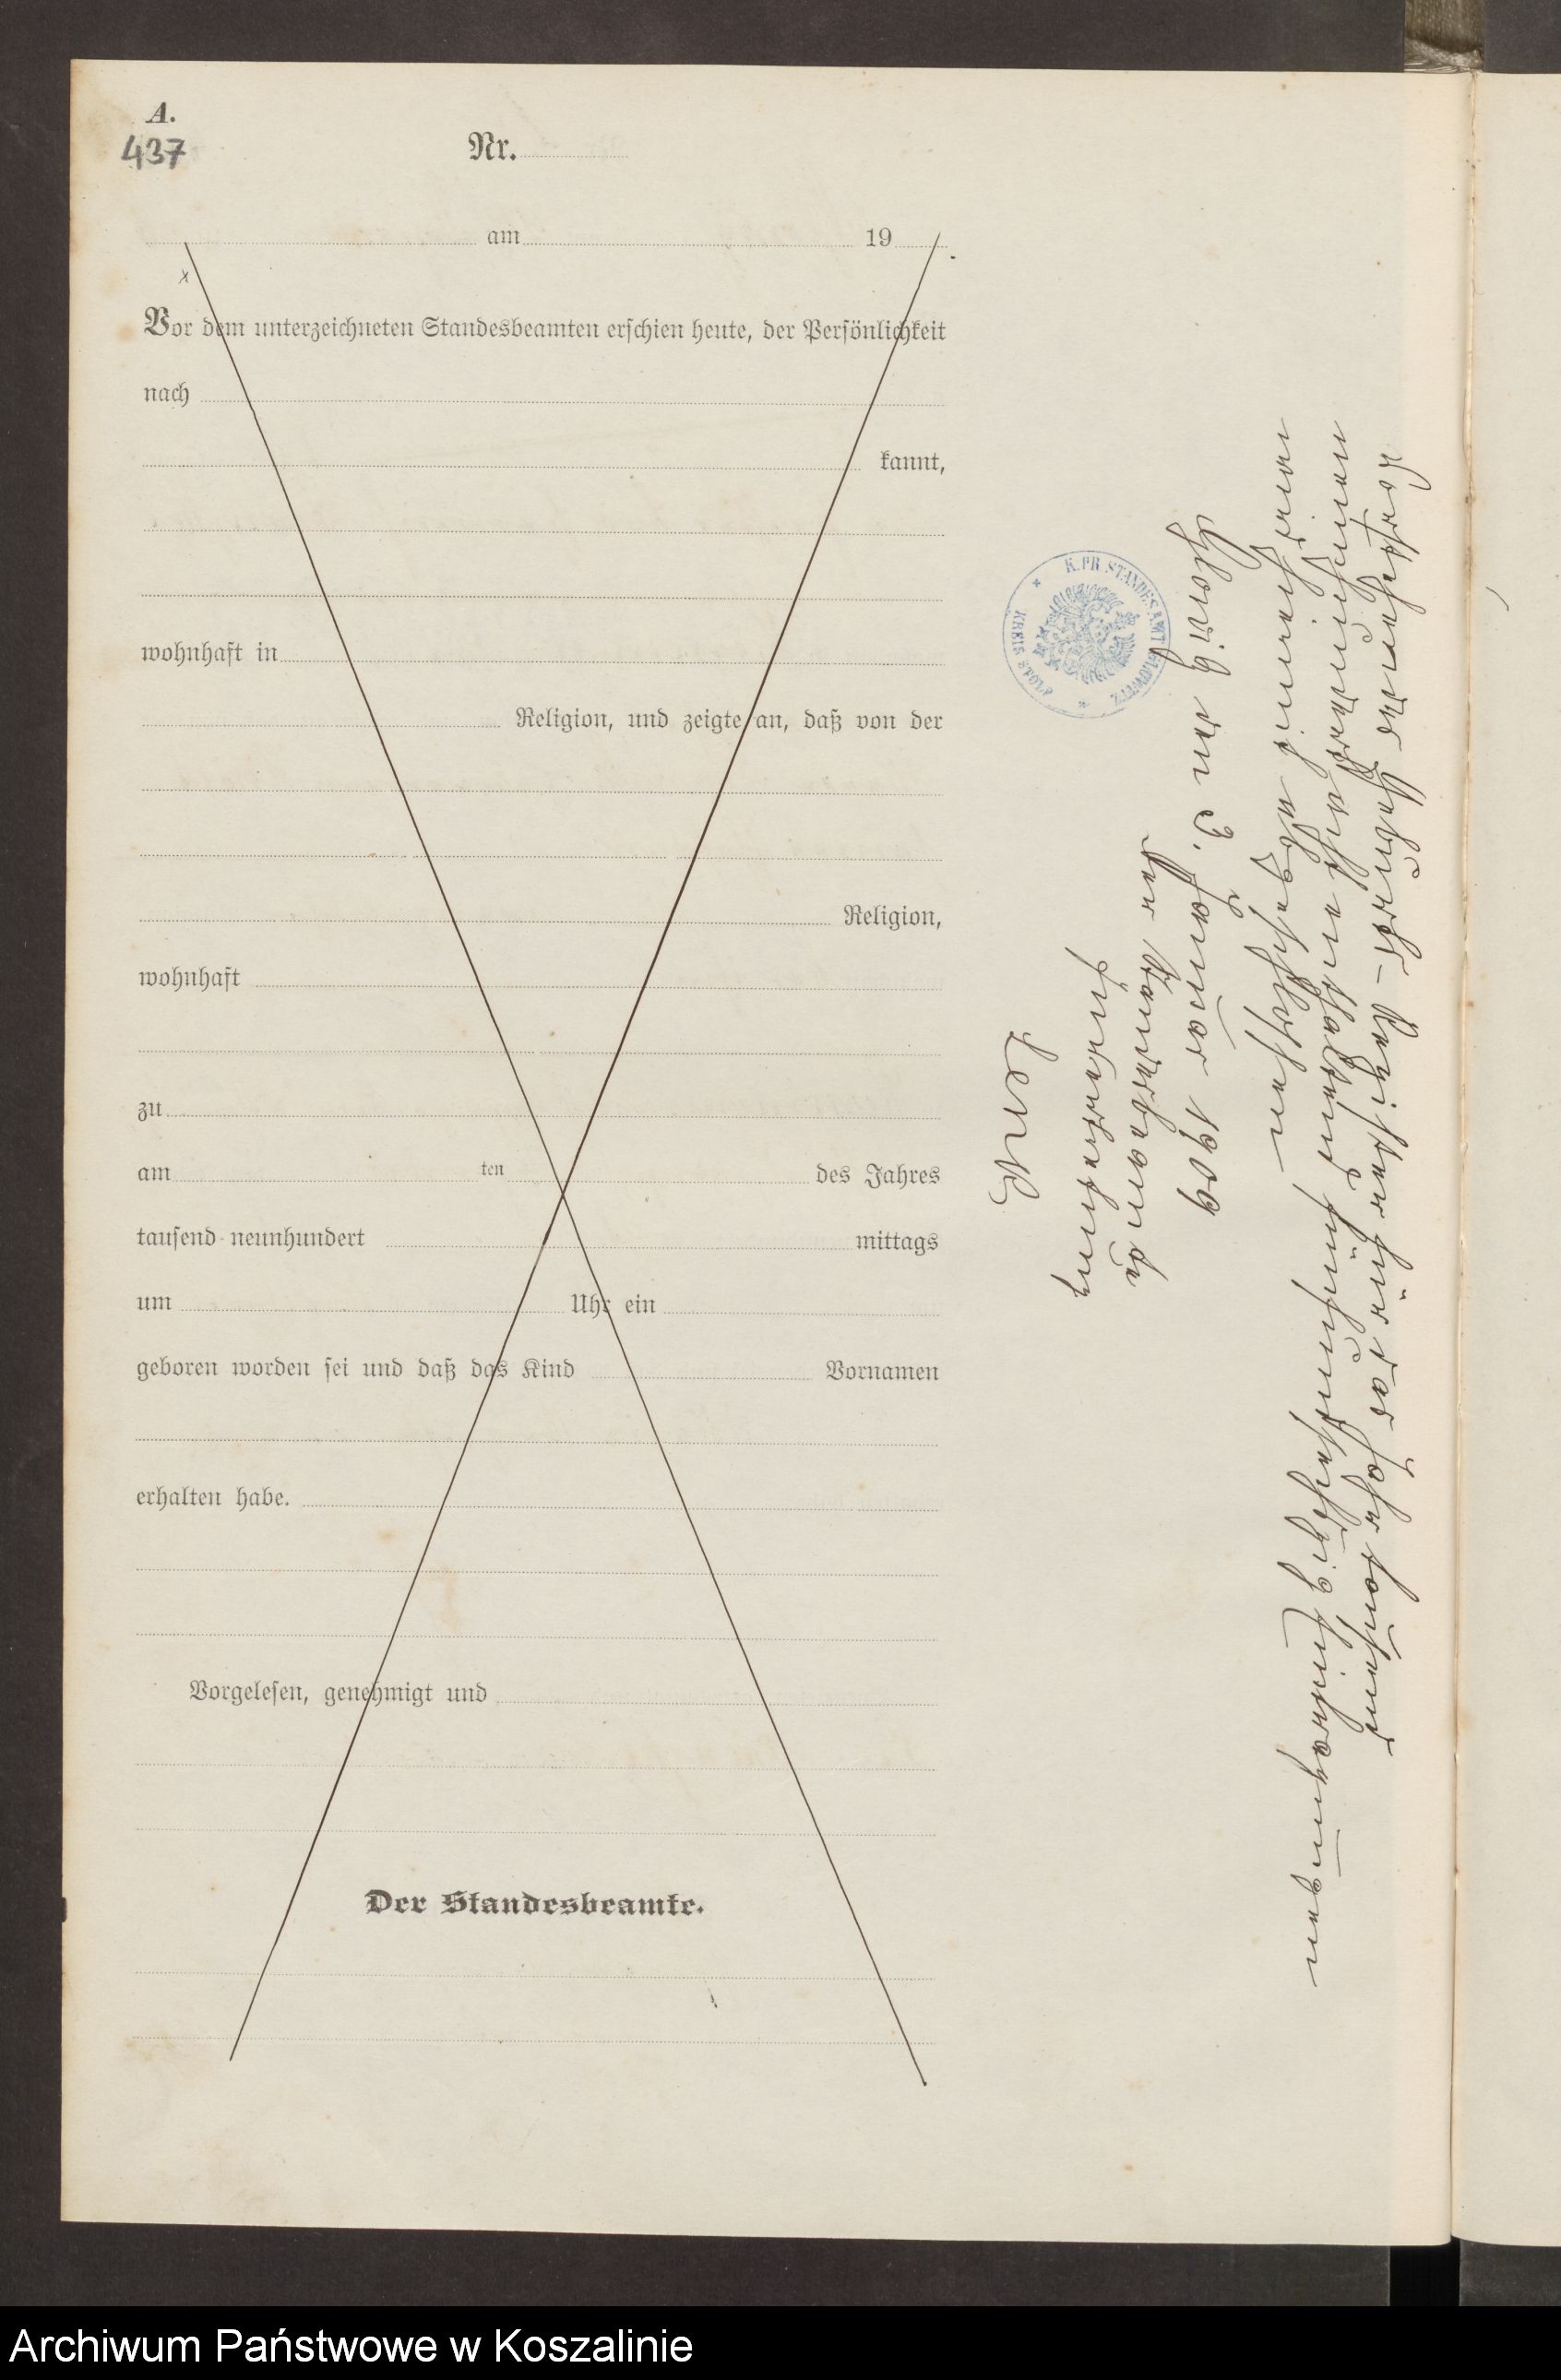 A.
437
Nr.
am 19
Vor dem unterzeichneten Standesbeamten erschien heute, der Persönlichkeit
nach
kannt,
wohnhaft in
Religion, und zeigte an, daß von der
Religion,
wohnhaft
zu
am ten des Jahres
tausend neunhundert mittags
um Uhr ein
geboren worden sei und daß das Kind Vornamen
erhalten habe.
Vorgelesen, genehmigt und
Der Standesbeamte.
Vorstehendes Geburts-Register für das Jahr tausend
neunhundert enthaltend fünfundsechzig Eintragungen
wird hiermit abgeschlossen
Glowitz den 3. Januar 1909
Der Standesbeamte
In Vertretung
K. PR. STANDESAMT GLOWITZ
KREIS STOLP
Archiwum Państwowe w Koszalinie